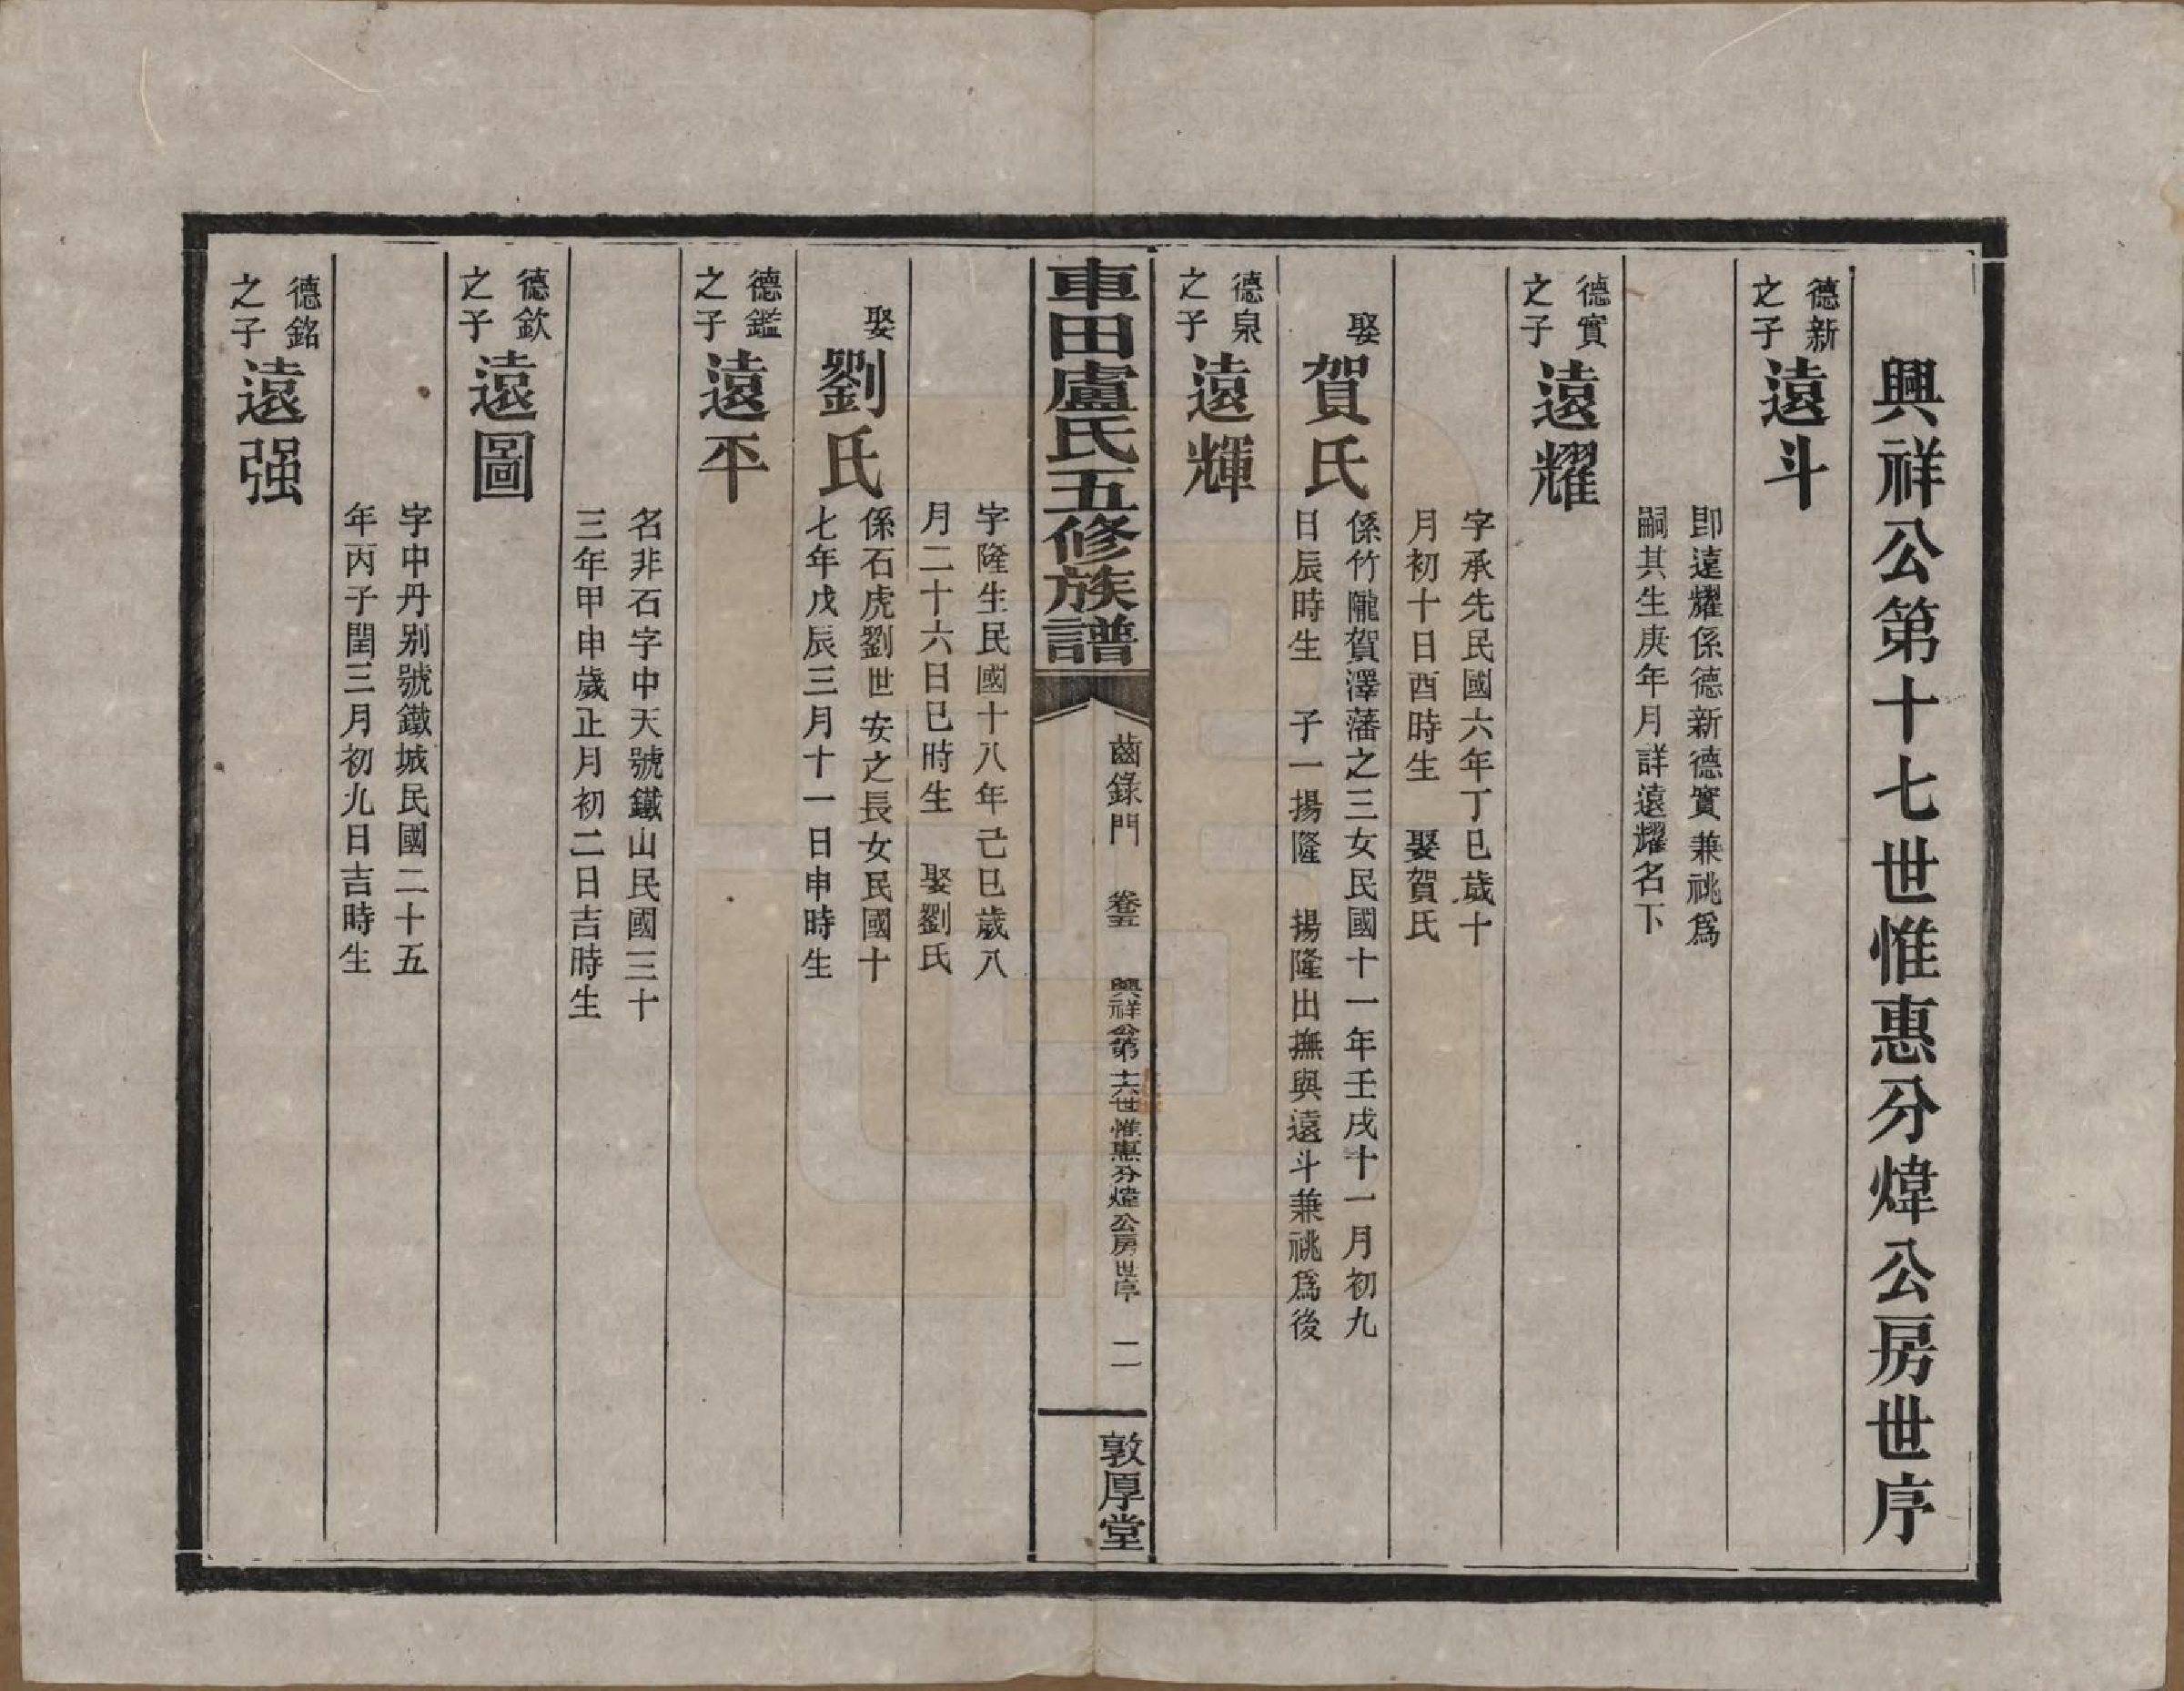 興祥公第十七世惟惠分煒公房世序
德新
之子
遠斗
即遠耀係德新德實兼祧爲
嗣其生庚年月詳遠耀名下
德實
之子
遠耀
字承先民國六年丁巳歲十
月初十日酉時生　娶賀氏
娶
賀氏
係竹隴賀澤藩之三女民國十一年壬戌十一月初九
日辰時生　子一揚隆　揚隆出撫與遠斗兼祧爲後
德泉
之子
遠輝
車田盧氏五修族譜
齒錄門　卷五　興祥公第十六世惟惠分煒公房世序　二
敦厚堂
字隆生民國十八年己巳歲八
月二十六日巳時生　娶劉氏
娶
劉氏
係石虎劉世安之長女民國十
七年戊辰三月十一日申時生
德鑑
之子
遠平
名非石字中天號鐵山民國三十
三年甲申歲正月初二日吉時生
德欽
之子
遠圖
字中丹別號鐵城民國二十五
年丙子閏三月初九日吉時生
德銘
之子
遠强